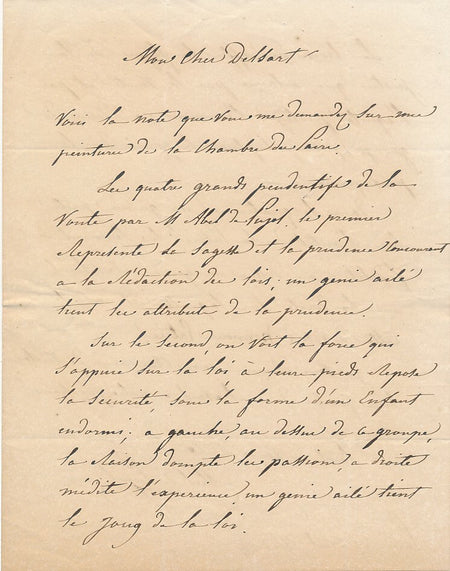 Mon cher Delsart
Voici la note que vous me demandez sur mes
peintures de la Chambre des Pairs.
Les quatre grands pendentifs de la
Voute par Mr Abel de Pujol. le premier
Represente la Sagesse et la prudence Concourant
a la Rédaction des lois, un genie ailé
tient les attributs de la prudence.
Sur le Second, on Voit la force qui
S'appuie sur la loi à leurs pieds Repose
la Sécurité, sous la forme d'un Enfant
endormi; a gauche, au dessus de ce groupe,
la Raison dompte les passions, a droite
médite l'experience, un genie ailé tient
le Joug de la loi.